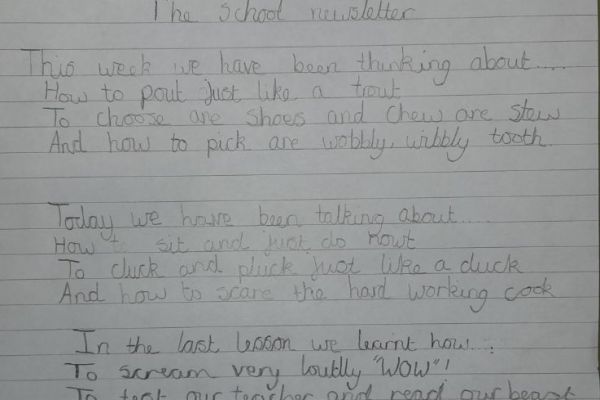 The school newsletter
This week we have been thinking about....
How to pout just like a trout
To choose are shoes and chew are stew
And how to pick are wobbly, wibbly tooth
Today we have been talking about....
How to sit and just do nowt
To cluck and pluck just like a duck
And how to scare the hard working cook
In the last lesson we learnt how...
To scream very loutlly "WOW"!
To test our teacher and read our beast